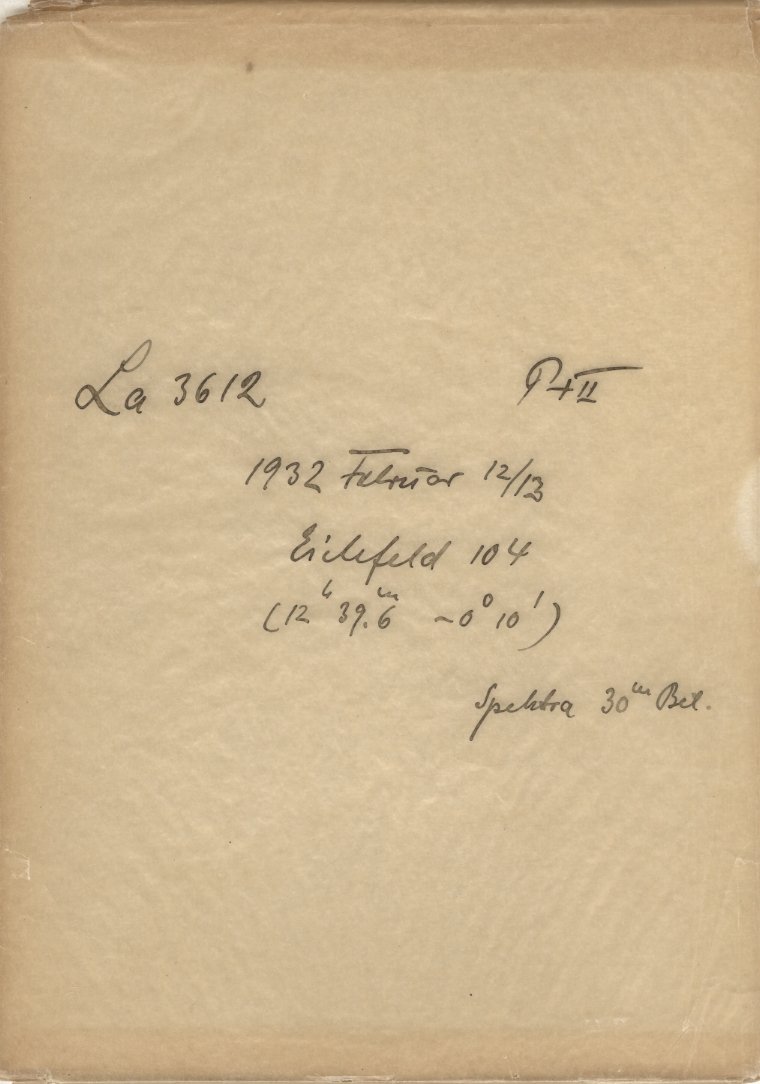 La 3612 P+II
1932 Februar 12/13
Eichfeld 104
(12ʰ 39.ᵐ6 -0° 10')
Spektra 30ᵐ Bel.